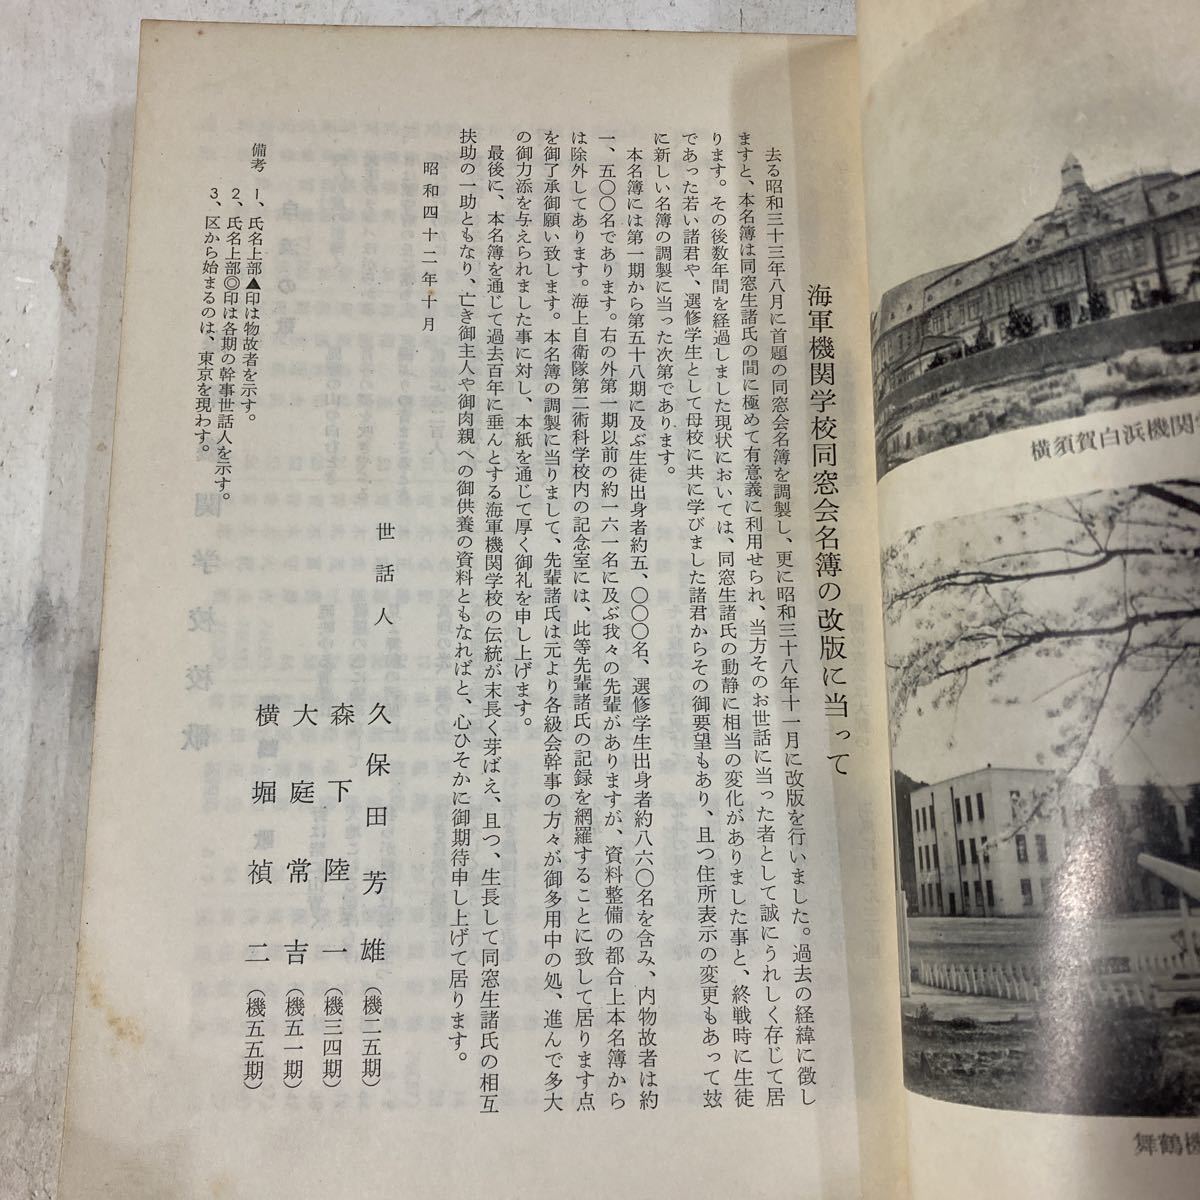 横須賀白浜機関
舞鶴機
海軍機関学校同窓会名簿の改版に当って
去る昭和三十三年八月に首題の同窓会名簿を調製し、更に昭和三十八年十一月に改版を行いました。過去の経緯に徴し
ますと、本名簿は同窓生諸氏の間に極めて有意義に利用せられ、当方そのお世話に当った者として誠にうれしく存じて居
ります。その後数年間を経過しました現状においては、同窓生諸氏の動静に相当の変化がありました事と、終戦時に生徒
であった若い諸君や、選修学生として母校に共に学びました諸君からその御要望もあり、且つ住所表示の変更もあって玆
に新しい名簿の調製に当った次第であります。
本名簿には第一期から第五十八期に及ぶ生徒出身者約五、〇〇〇名、選修学生出身者約八六〇名を含み、内物故者は約
一、五〇〇名であります。右の外第一期以前の約一六一名に及ぶ我々の先輩がありますが、資料整備の都合上本名簿から
は除外してあります。海上自衛隊第二術科学校内の記念室には、此等先輩諸氏の記録を網羅することに致して居ります点
を御了承御願い致します。本名簿の調製に当りまして、先輩諸氏は元より各級会幹事の方々が御多用中の処、進んで多大
の御力添を与えられました事に対し、本紙を通じて厚く御礼を申し上げます。
最後に、本名簿を通じて過去百年に垂んとする海軍機関学校の伝統が末長く芽ばえ、且つ、生長して同窓生諸氏の相互
扶助の一助ともなり、亡き御主人や御肉親への御供養の資料ともなればと、心ひそかに御期待申し上げて居ります。
昭和四十二年十月
世話人
久保田芳雄(機二五期)
森下陸一(機三四期)
大庭常吉(機五一期)
横堀禎二(機五五期)
備考 1、氏名上部▲印は物故者を示す。
2、氏名上部◎印は各期の幹事世話人を示す。
3、区から始まるのは、東京を現わす。